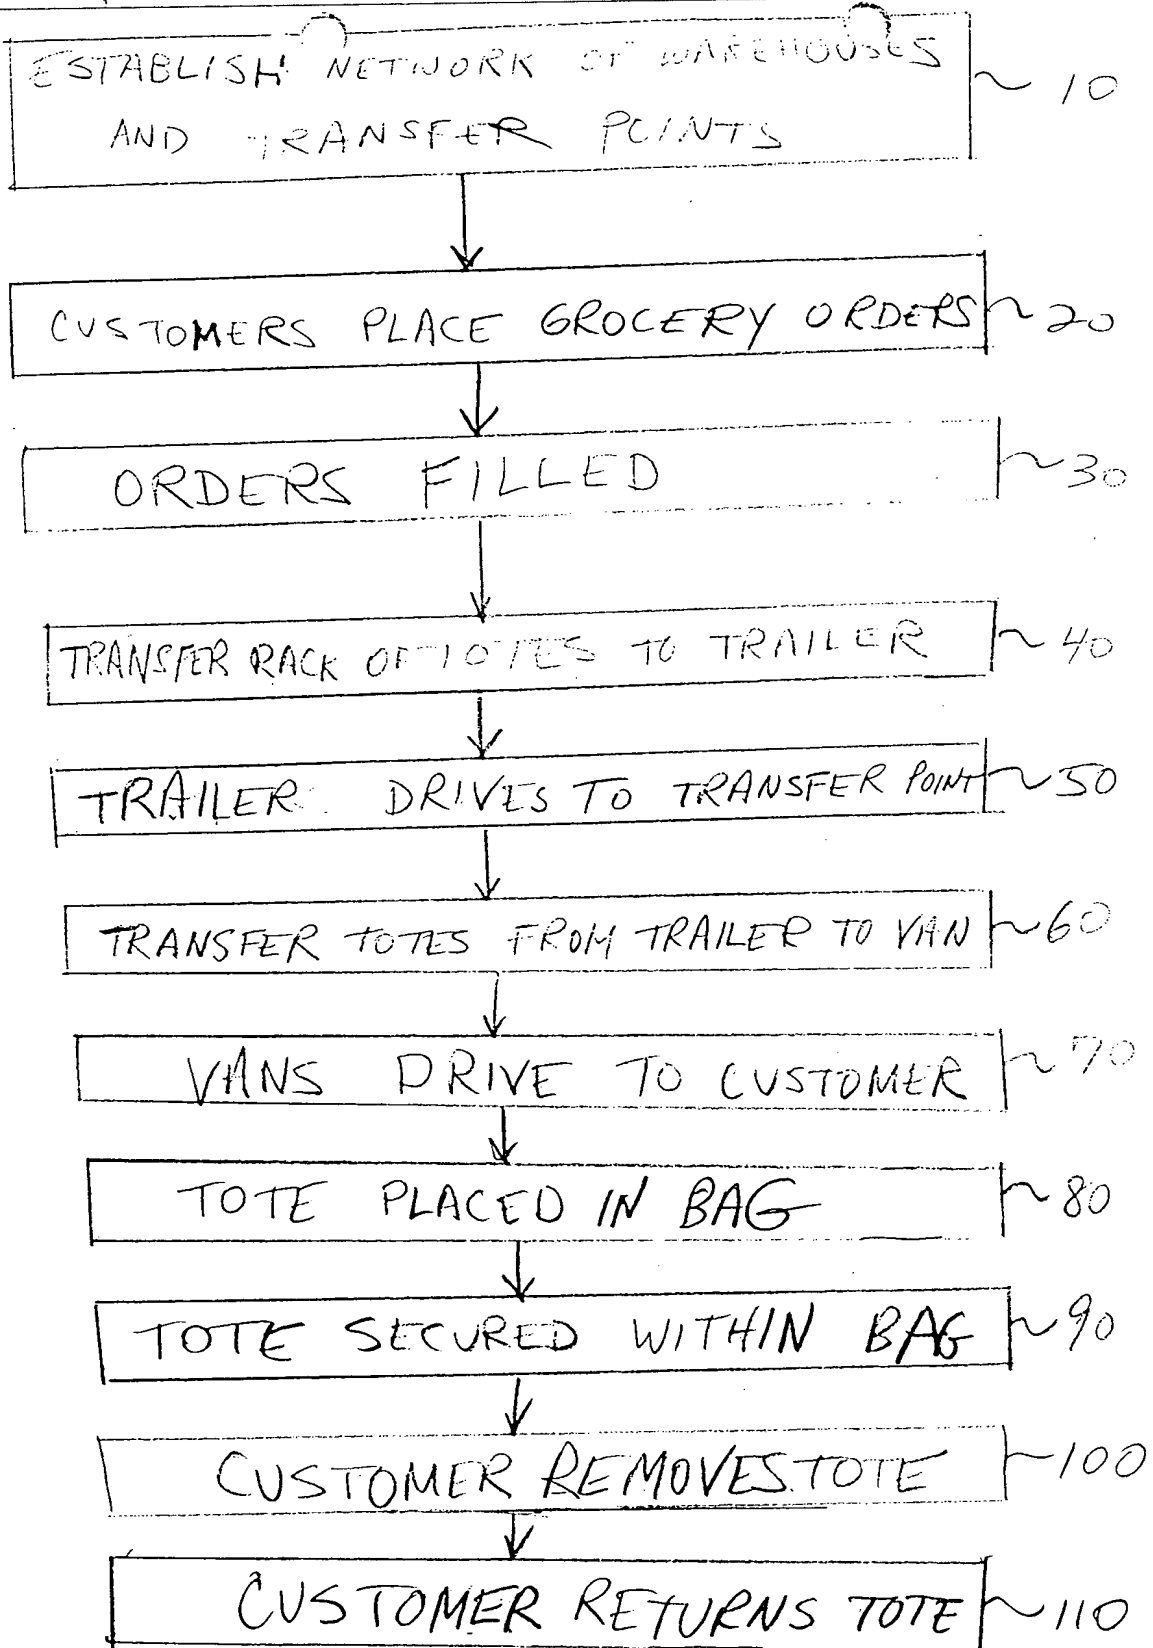 ESTABLISH NETWORK OF WAREHOUSES ~10
AND TRANSFER POINTS
CUSTOMERS PLACE GROCERY ORDERS ~20
ORDERS FILLED ~30
TRANSFER RACK OF TOTES TO TRAILER ~40
TRAILER DRIVES TO TRANSFER POINT ~50
TRANSFER TOTES FROM TRAILER TO VAN ~60
VANS DRIVE TO CUSTOMER ~70
TOTE PLACED IN BAG ~80
TOTE SECURED WITHIN BAG ~90
CUSTOMER REMOVES TOTE ~100
CUSTOMER RETURNS TOTE ~110